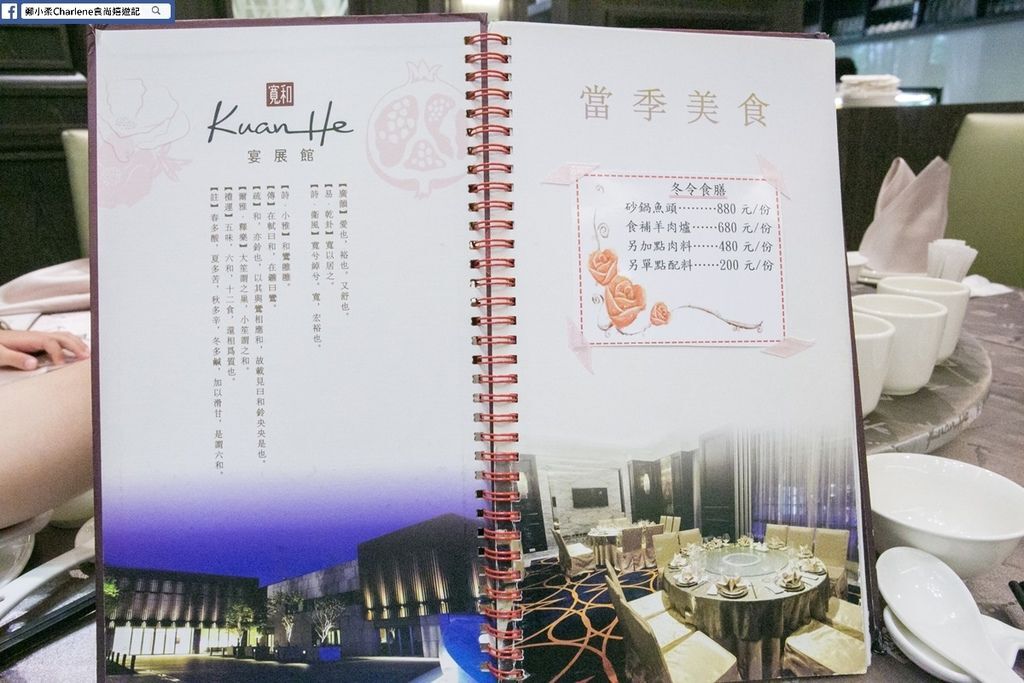 鄭小柔Charlene食尚嬉遊記
寬和
Kuan He
宴展館
【廣韻】愛也，裕也，又舒也。
易．乾卦】寬以居之。
詩．衛風】寬兮綽兮。寬，宏裕也。
【詩．小雅】和鸞雝雝。
【傳】在軾曰和，在鑣曰鸞。
【疏】和，亦鈴也，以其與鸞相應和，故載見曰和鈴央央是也。
【爾雅．釋樂】大笙謂之巢，小笙謂之和。
【禮運】五味，六和，十二食，還相爲質也。
【註】春多酸，夏多苦，秋多辛，冬多鹹，加以滑甘，是謂六和。
當季美食
冬令食膳
砂鍋魚頭………880 元/份
食補羊肉爐……680 元/份
另加點肉料……480 元/份
另單點配料……200 元/份